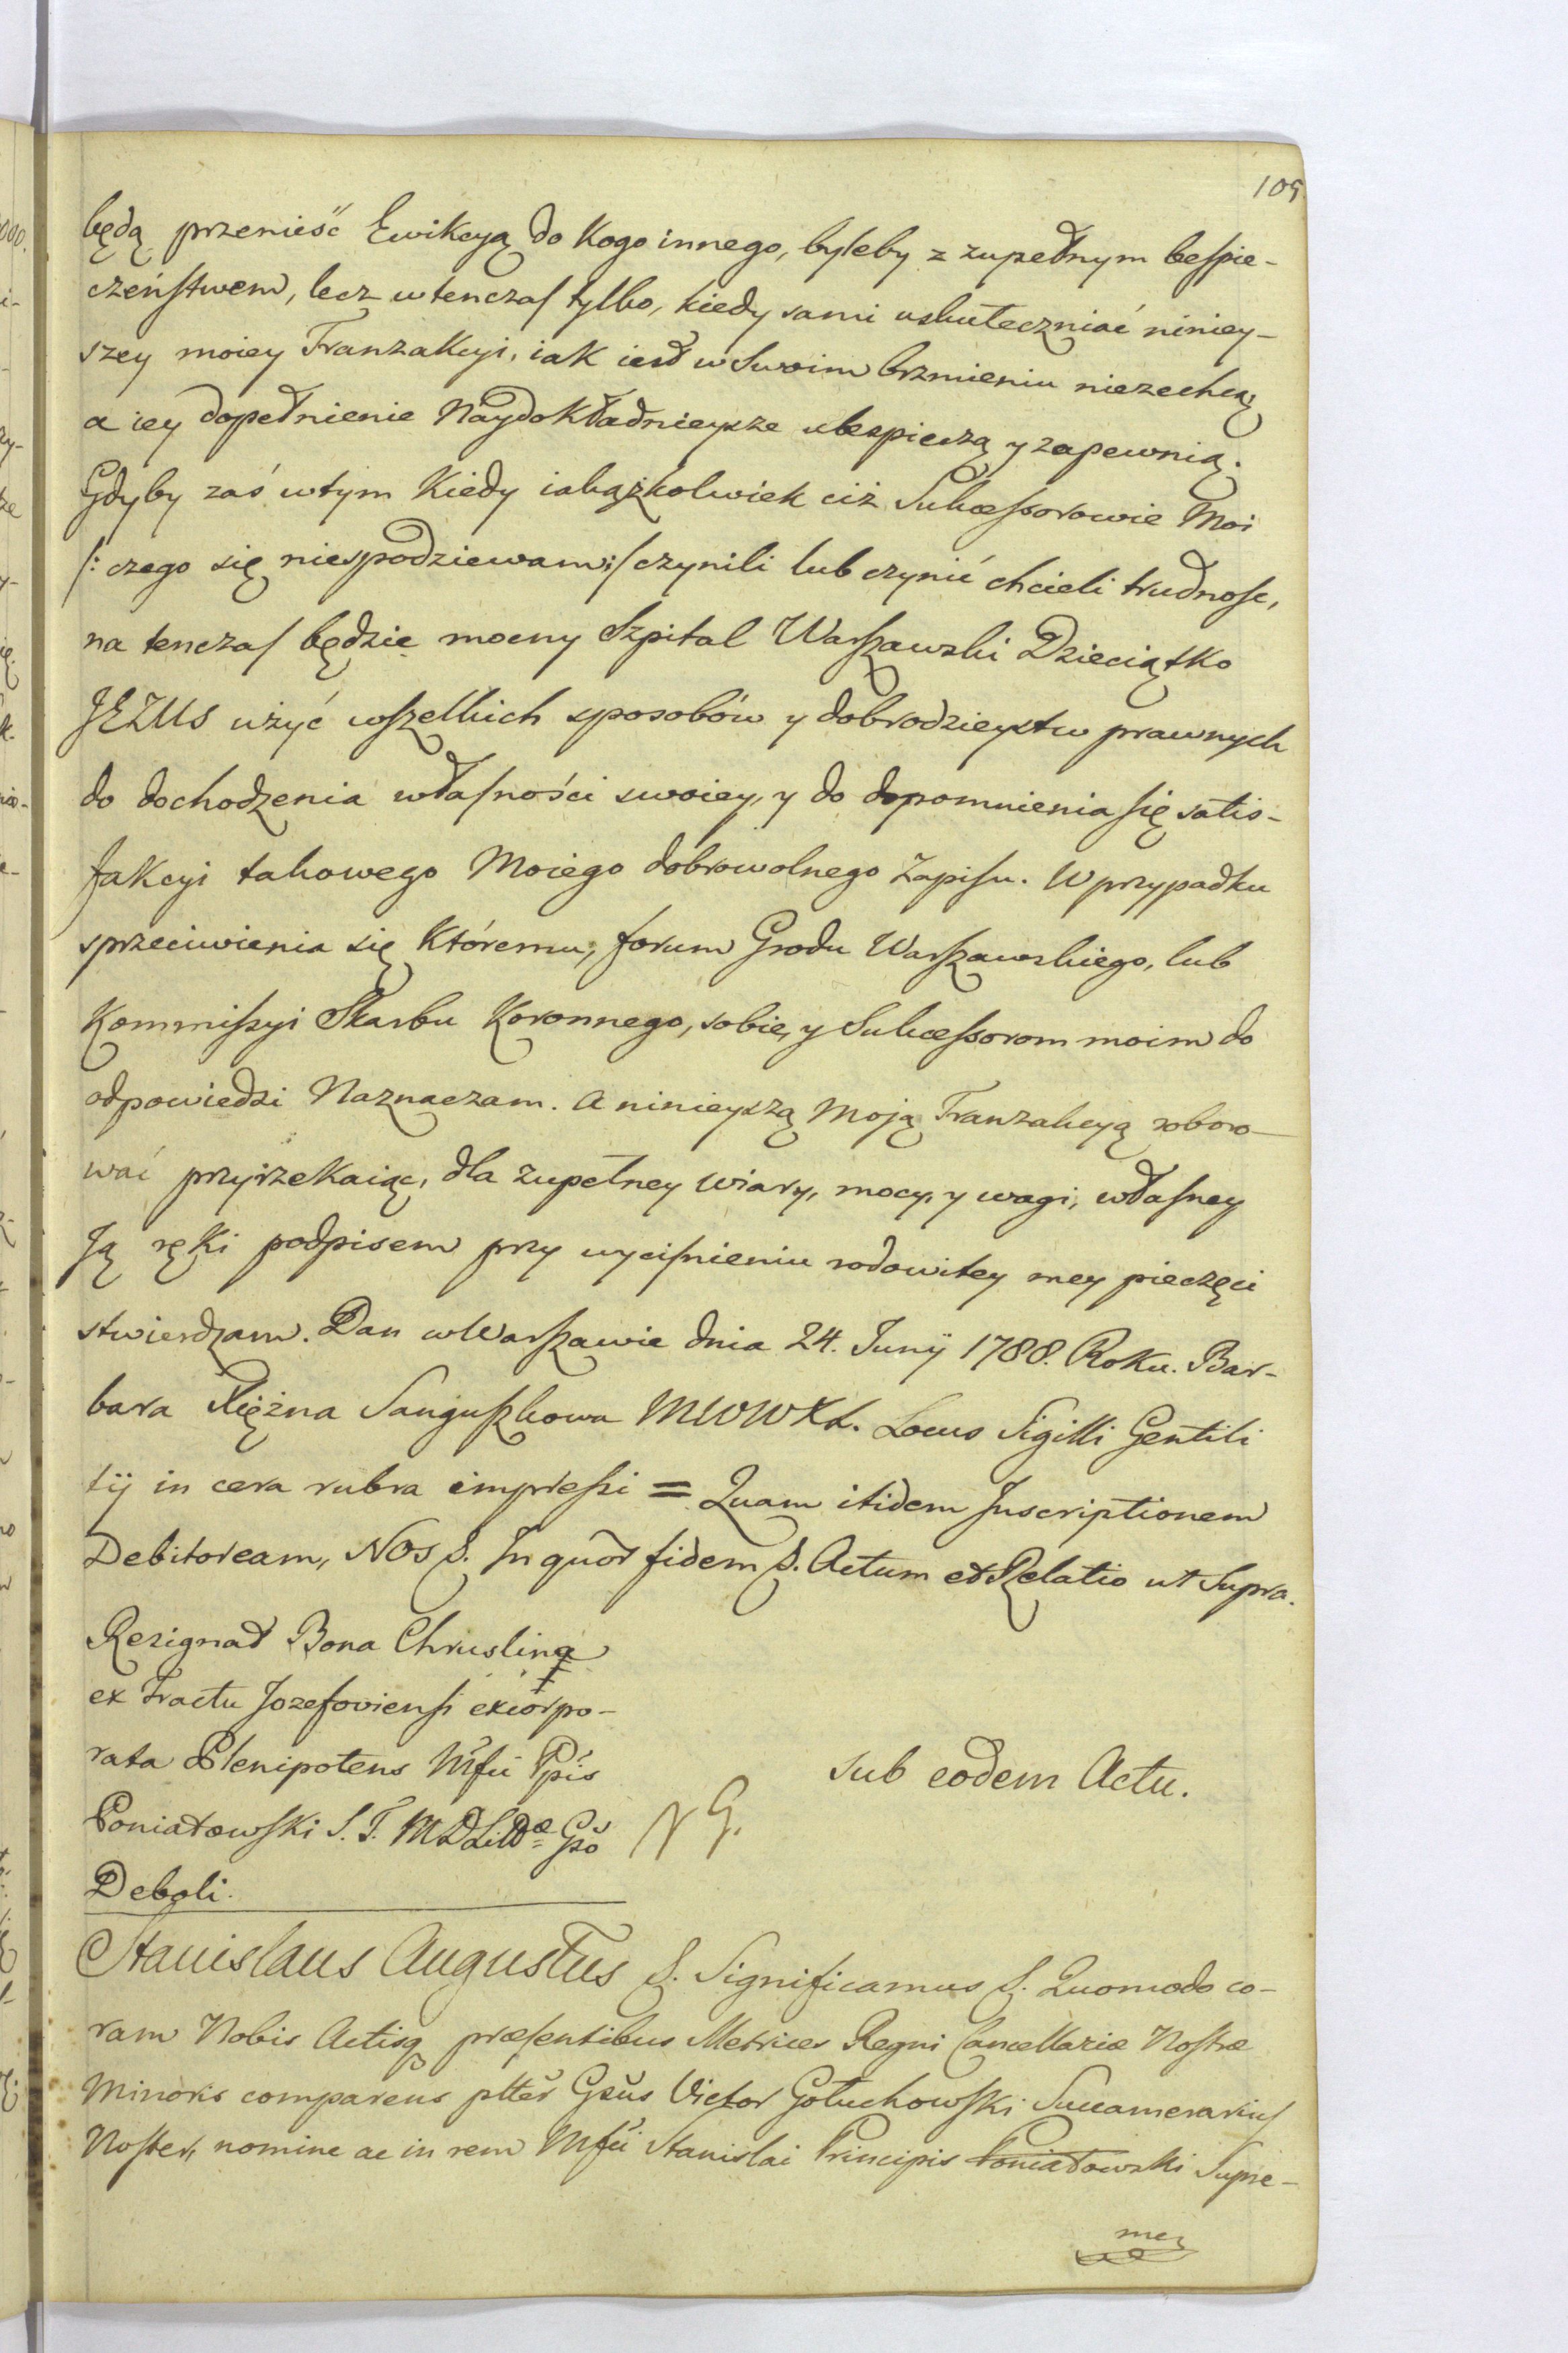 109
będą przenieść Ewikcyą do Kogo innego, byleby z zupełnym beſpie-
czeńſtwem, lecz wtenczaſ tylko, kiedy sami uskuteczniać niniey-
szey moiey Tranzakcyi, iak iest w Swoim brzmieniu niezechcą
a iey dopełnienie Naydokładnieysze ubespieczą y zapewnią.
Gdyby zaś wtym Kiedy iakążkolwiek ciż Sukceſsorowie Moi
/: czego się niespodziewam :/ czynili lub czynić chcieli trudnoſc,
na tenczaſ będzie mocny Szpital Warſzawski Dzieciątko
JEZUS użyć wſzelkich sposobów y dobrodzieystw prawnych
do dochodzenia właſności swoiey, y do dopomnienia ſię satis-
fakcyi takowego Moiego dobrowolnego Zapiſu. W przypadku
sprzeciwienia się Któremu, forum Grodu Warſzawskiego, lub
Kommiſsyi Skarbu Koronnego, sobie, y Sukceſsorom moim do
odpowiedzi Naznaczam. A ninieyszą Moją Tranzakcyą roboro-
wać przyrzekaiąc, dla zupełney wiary, mocy, y wagi, właſney
Ją ręki podpisem przy wyciſnieniu rodowitey mey pieczęci
stwierdzam. Dan w Warſzawie dnia 24. Junÿ 1788. Roku. Bar-
bara Xiężna Sanguſzkowa MWWXL. Locus Sigilli Gentili
tÿ in cera rubra impreſsi = Quam itidem Inscriptionem
Debitoream, NOS &. In quor̃ fidem &. Actum et Relatio ut Supra.
Rezignat Bona Chruslina
ex Tractu Jozefovienſi excorpo-
rata Plenipotens Mf̃ci Ppis
Poniatowſki S. T. MDLittæ Gsõ
Deboli.
NG.
sub eodem Actu.
Stanislaus Augustus &. Significamus &. Quomodo co-
ram Nobis Actisq præſentibus Metrices Regni Cancellariæ Noſtræ
Minoris comparens pltẽr Gsũs Victor Gołuchowſki Succamerariuſ
Noſter, nomine ac in rem Mf̃ci Stanislai Principis Poniatowski Supre-
mer